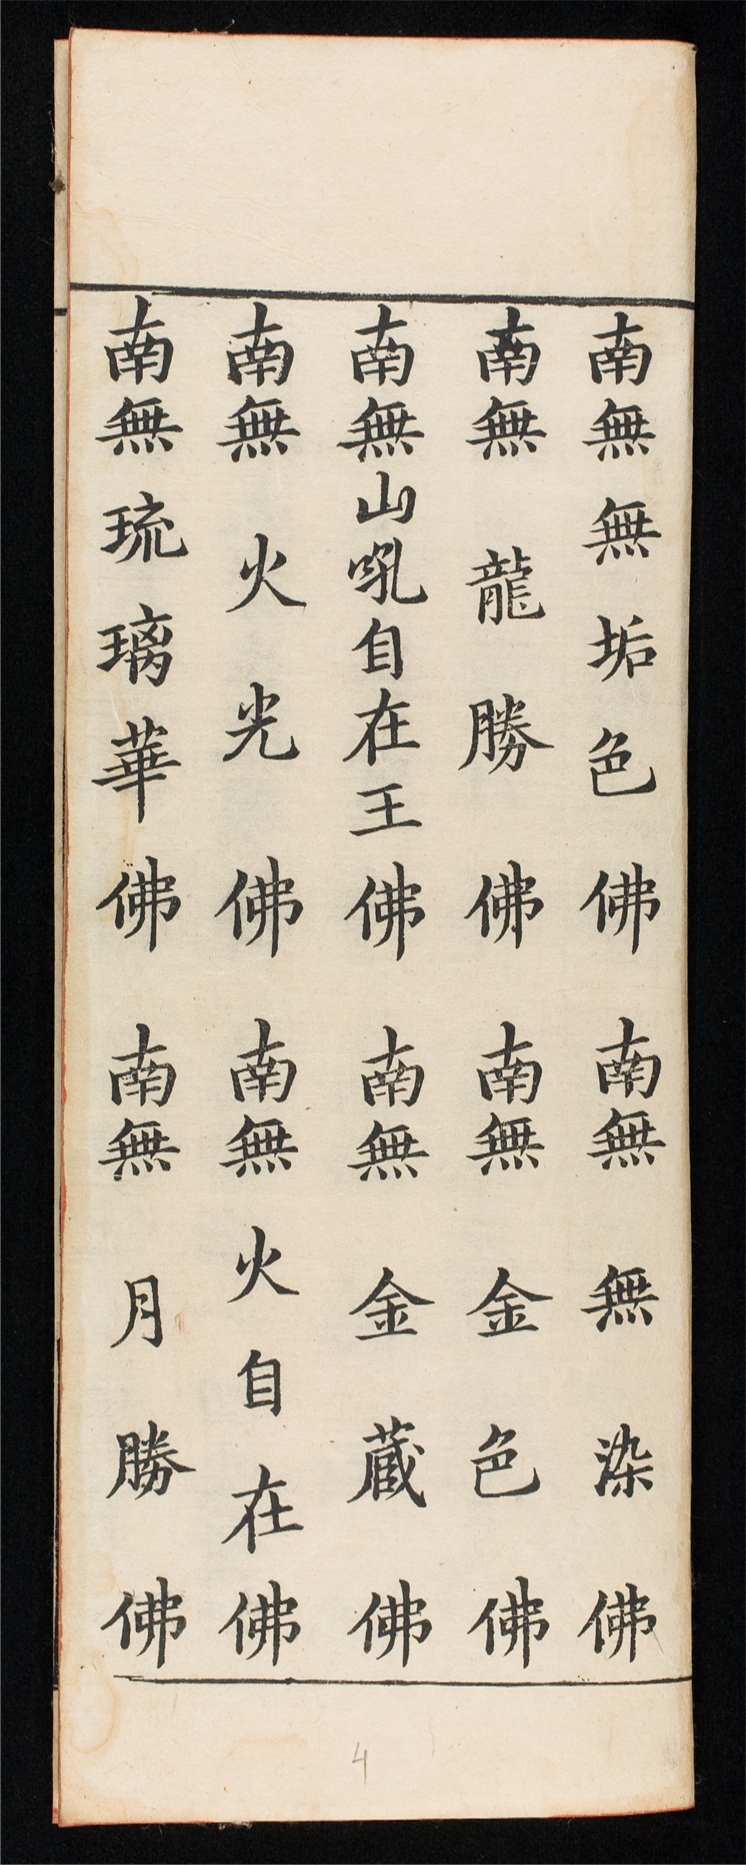 南無無垢色佛南無無染佛
南無龍勝佛南無金色佛
南無山吼自在王佛南無金蔵佛
南無火光佛南無火自在佛
南無琉璃華佛南無月勝佛
4